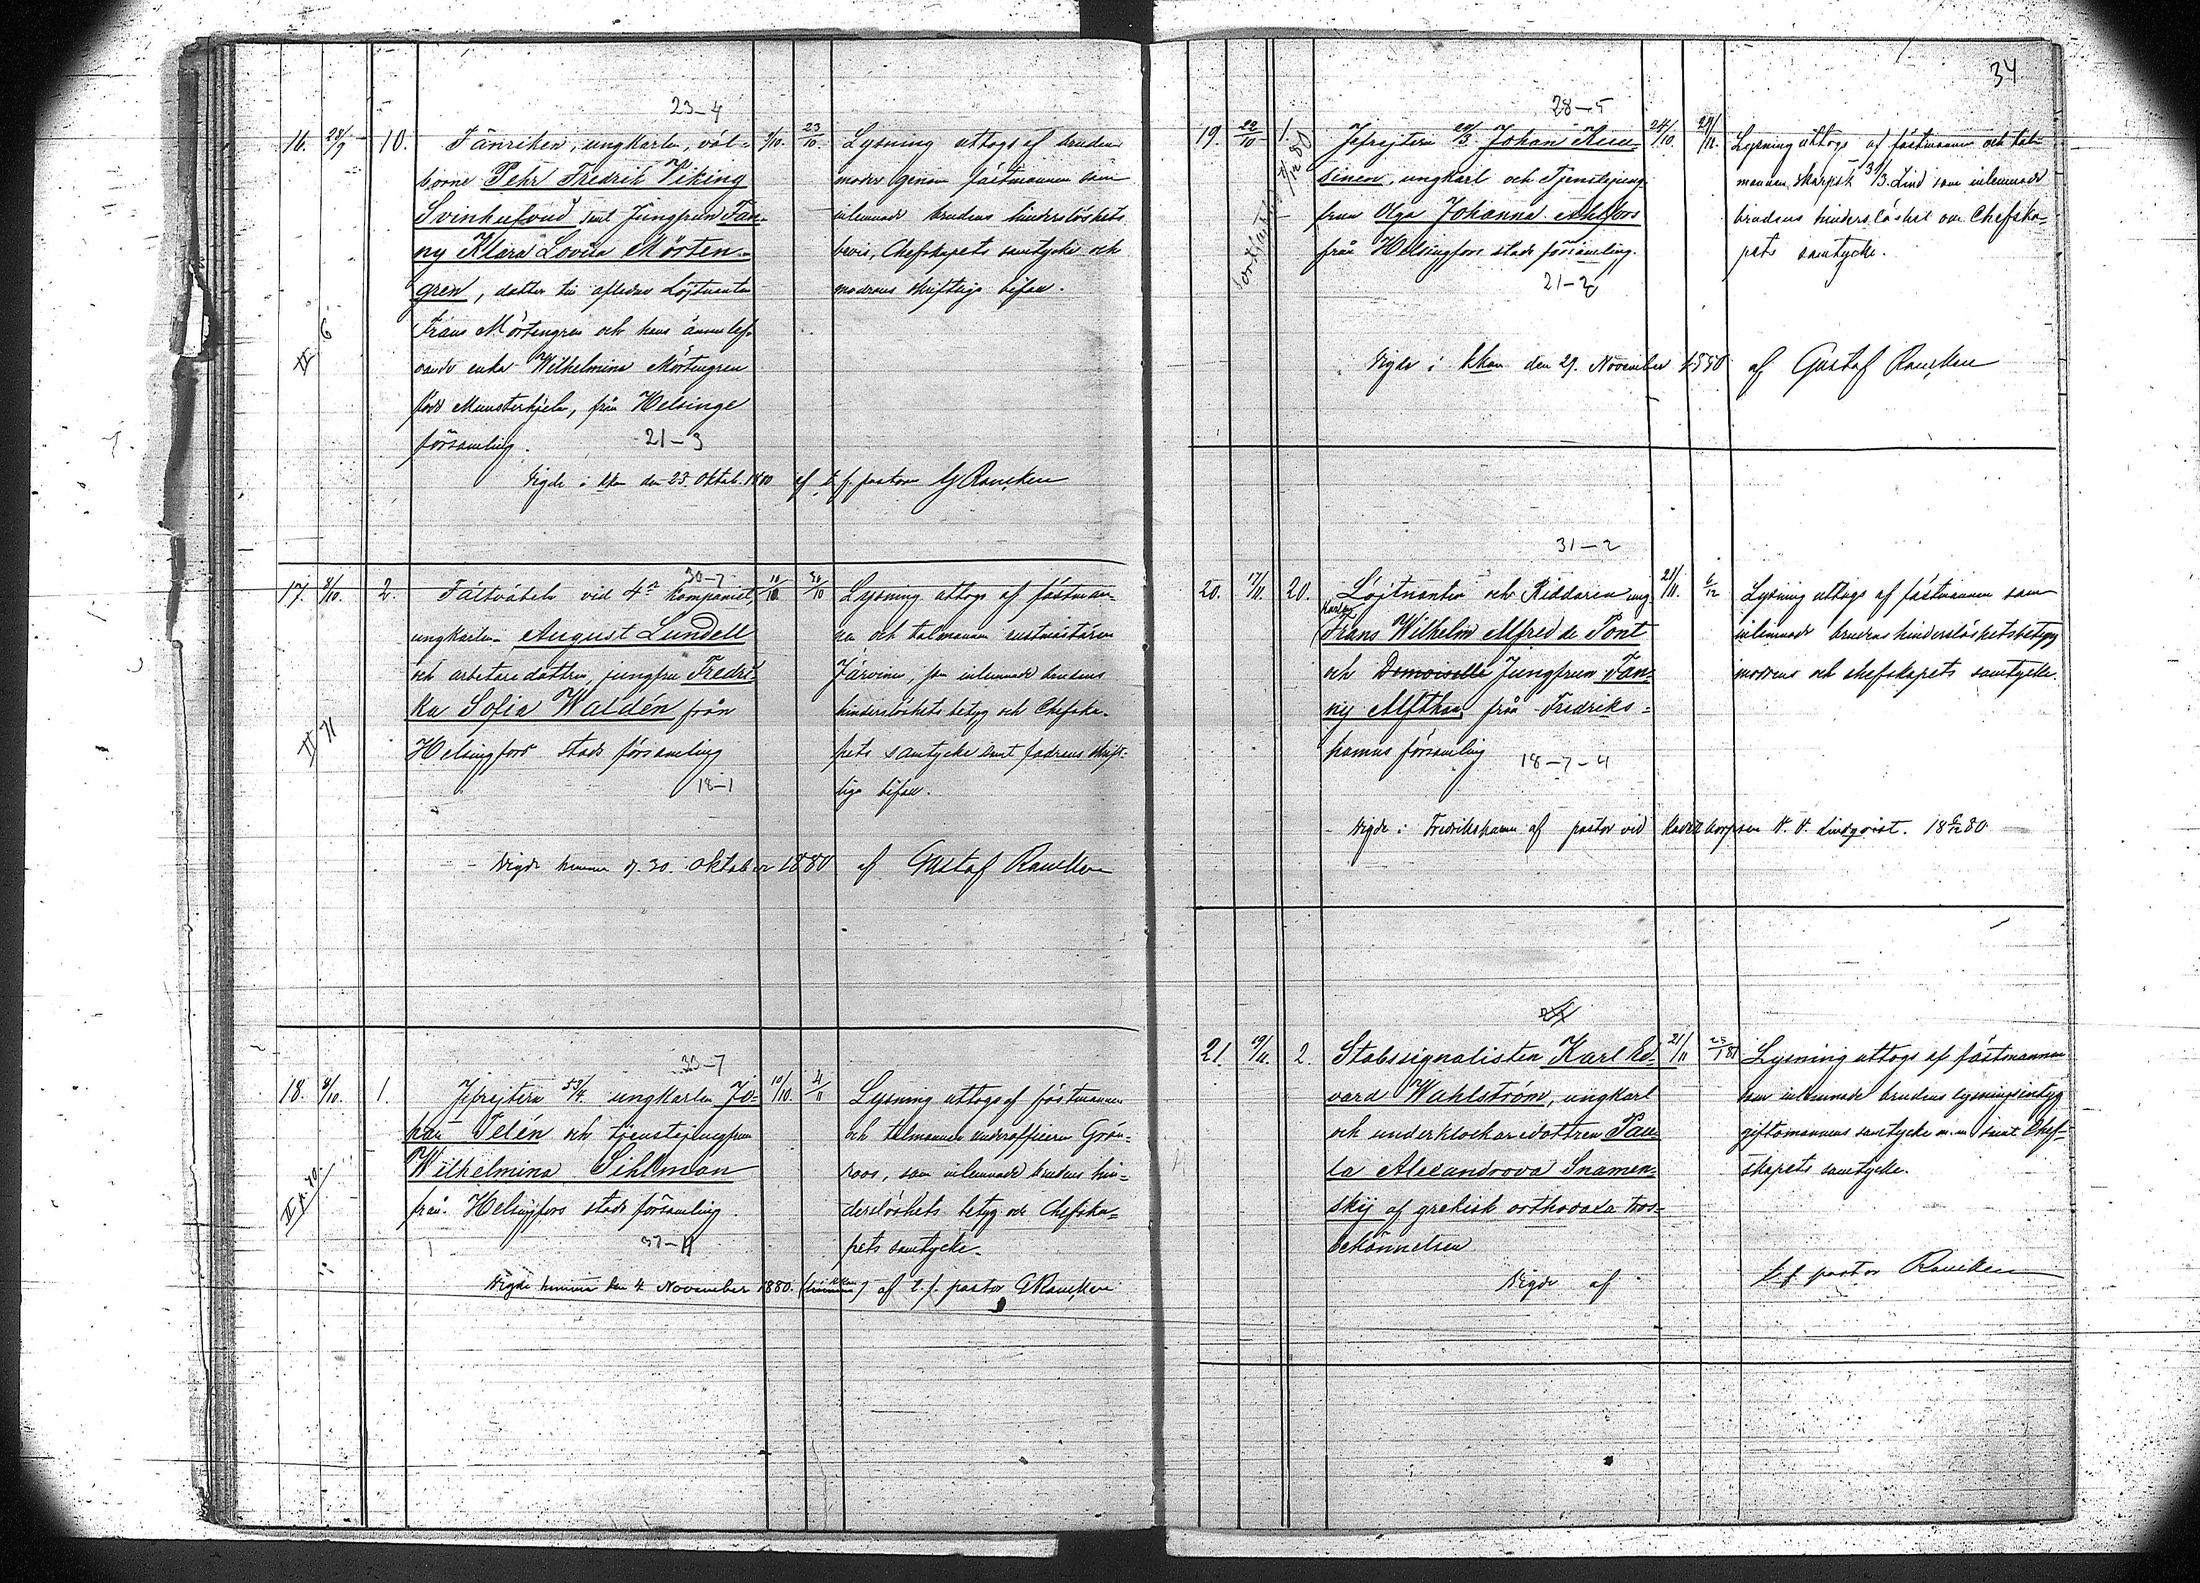 34
23-4
16. 28/9 10. Fänriken, ungkarlen, väl-
borne Pehr Fredrik Viking
Svinhufvud samt Jungfrun Fan-
ny Klara Lovisa Mörten-
gren, dotter till aflidne Löjtnanten
Frans Mörtengren och hans ännu lef-
vande enka Wilhelmina Mörtengren
född Munsterhjelm, från Helsinge
församling.
21-3
3/10. 23/10.
Lysning uttogs af brudens
moder genom fästmannen som
inlemnade brudens hinderslöshets
bevis, Chefskapets samtycke och
modrens skriftliga bifall.
II 6
Vigde i kkan den 23 Oktob. 1880 af t. f. pastor G Rancken
30-7
17. 8/10. 2. Fältväbeln vid 4de Kompaniet,
ungkarlen August Lundell
och arbetaredottren, jungfru Fredri-
ka Sofia Waldén från
Helsingfors stads församling
18-1
10/10. 30/10
Lysning uttogs af fästman-
nen och talmannen rustmästaren
Järvinen, som inlemnade brudens
hinderslöshets betyg och Chefska-
pets samtycke samt fadrens skrift-
liga bifall.
II 71
Vigde hemma d. 30. Oktober 1880 af Gustaf Rancken
33-7
18. 8/10. 1. Jefrejtern 53/4. ungkarlen Jo-
han Telén och tjenstejungfrun
Wilhelmina Sihlman
från Helsingfors stads församling.
37-11
10/10. 4/11
Lysning uttogs af fästmannen
och talmannen underofficern Grön-
roos, som inlemnade brudens hin-
derslöshets betyg och Chefska-
pets samtycke.
Vigde hemma den 4 November 1880. af t. f. pastor G Rancken
28-5
19. 22/10 1. Jefrejtern 20/3. Johan Kuu-
sinen, ungkarl och Tjenstejung-
frun Olga Johanna Ahlfors
från Helsingfors stads församling.
21-2
24/10. 29/11.
Lysning uttogs af fästmannen och tal-
mannen skarpsk 31/3. Lind som inlemnade
brudens hinderslöshet och Chefska-
pets samtycke.
Vigde i kkan den 29. November 1880 af Gustaf Rancken
31-2
20. 17/11. 20. Löjtnanten och Riddaren ung
karlen
Frans Wilhelm Alfred de Pont
och Demoiselle Jungfrun Fan-
ny Alfthan, från Fredriks-
hamns församling
18-7-4
21/11. 6/12
Lysning uttogs af fästmannen som
inlemnade brudens hinderslöshetsbetyg
modrens och chefskapets samtycke.
Vigde i Fredrikshamn af pastor vid Kadettkorpsen K. V. Lindqvist. 18 6/12 80
21. 19/11. 2. Stabssignalisten Karl Ed-
vard Wahlström, ungkarl
och underklockaredottren Pau-
la Alexandrova Snamen-
skij af grekisk orthodoxa tros-
bekännelsen
21/11 25/1 81
Lysning uttogs af fästmannen
som inlemnade brudens lysningsintyg
giftomannens samtycke m.m samt Chef-
skapets samtycke.
Vigde af t. f. pastor Rancken